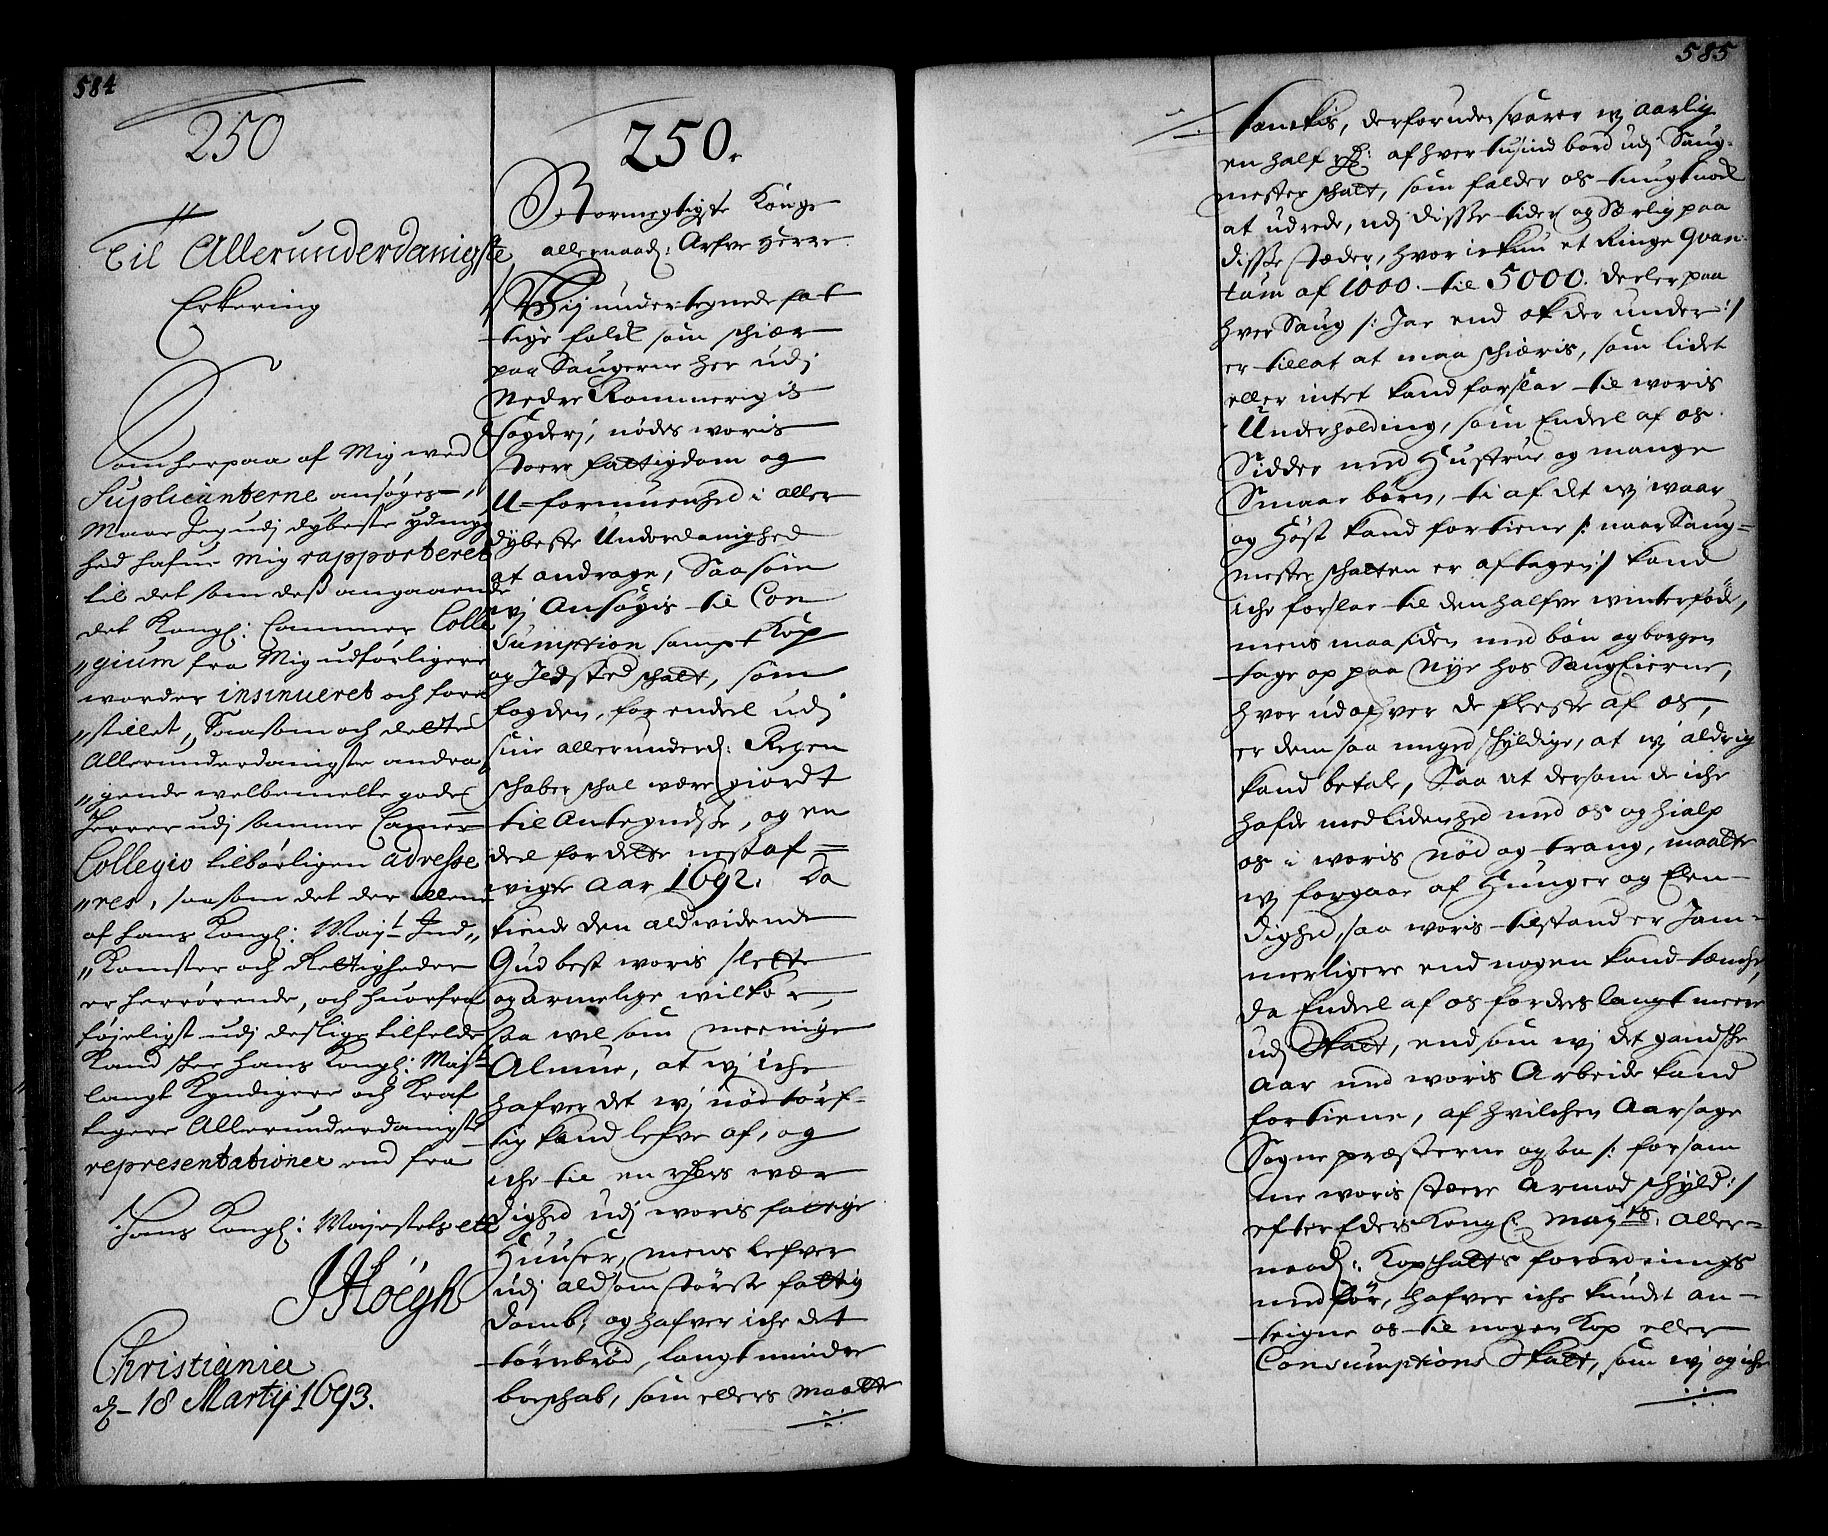 584
250
Til Allerunderdanigste
Erkering
Som herpaa af Mig wed
Suplicanterne ansøges,
Maae Jeg udj dybeste ydmyg
hed hafue mig rapporteret
til det som deß angaaende
det Kongl: Cammer Colle
"gium fra Mig udførligere
worder insinueret och fore
"stillet, Saasom och dette
Allerunderdanigste andra
"gende welbemelte gode
Herrer udj samme Camer
Collegio tilbørligen adresse
"res, saasom det der allene
af hans Kongl: Mayt Ind"
"Komster och Rettigheder
er herrørende, och huorfra
føjeligst udj deslige tilfelde
Kand skee hans Kongl: Mayt
langt Kyndigere och Kraf
tigere Allerunderdanigste
representationer end fra
Hans Kongl: Majestets etc
JHöegh
Christiania
d. 18 Martij 1693.
250.
Stormegtigste Konge
allernaad: Arfve Herre.
Wij undertegnede fat
tige folck som schiær
paa Saugerne her udj
Nedre Rommerigis
fogderj, nødes woris
store fattigdom og
U=formuenhed i aller
dybeste Underdanighed
at andrage, Saasom
wj Ansøgis til Con
sumption sampt Kop
og Ildsted schatt, som
fogden, for endeel udj
sine allerunderd: Regen
schaber schal være giordt
til Antegnelse, og en
deel for dette nest af=
wigte Aar 1692. Da
kiende den aldwidende
Gud best woris slette
og armelige wilkor,
saa wel som meenige
Almue, at wj iche
hafver det wj nødtørf=
tig kand lefve af, og
iche til en rdlrs wær
dighed udj woris fattige
Huuser, mens lefver
udj aldsomstørste fattig
domb, og hafver iche det
tørre brød, langt mindre
boeschab, som ellers maatte
585
tænckis, derforuden svarer wj aarlig
en half rdr: af hver tusind bord udj Saug=
mester schatt, som falder os tungt nock
at udrede, udj disse tider og Særlig paa
disse stæder, hvor ickun et Ringe Quan=
tum af 1000. til 5000. deeler paa
hver Saug /: Jae end ock der under :/
er tillat at maa schiæris, som lidet
eller intet kand forslae til woris
Underholding, som Endeel af os
Sidder med Hustrue og mange
Smaae børn, ti af det wj waar
og Høst kand fortiene /: naar Saug=
mester schatten er aftagen :/ kand
iche forslae til den halfve winterføde,
mens maa siden med bøn og borgen
tage op paa Nye hos Saug Eierne,
hvor udofver de fleste af os,
er dem saa meget schyldige, at wj aldrig
kand betale, Saa at dersom de iche
hafde medlidenhed med os og hialp
os i woris nød og trang, maatte
wj forgaae af Hunger og Elen=
dighed, saa woris tilstand er Jam=
merligere end nogen kand tænche,
da Endeel af os fordres langt meere
udj Skatt, end som wj det gandsche
Aar med woris Arbeide kand
fortiene, af hvilchen Aarsage
Sogne præsterne og
ene woris store Armod schyld :/
efter Eders Kongl: Mayts: Aller=
naad: Kopschatts forordnings
medfør, hafver iche kundet an=
teigne os til nogen Kop eller
Consumptions Skatt, som wj og iche